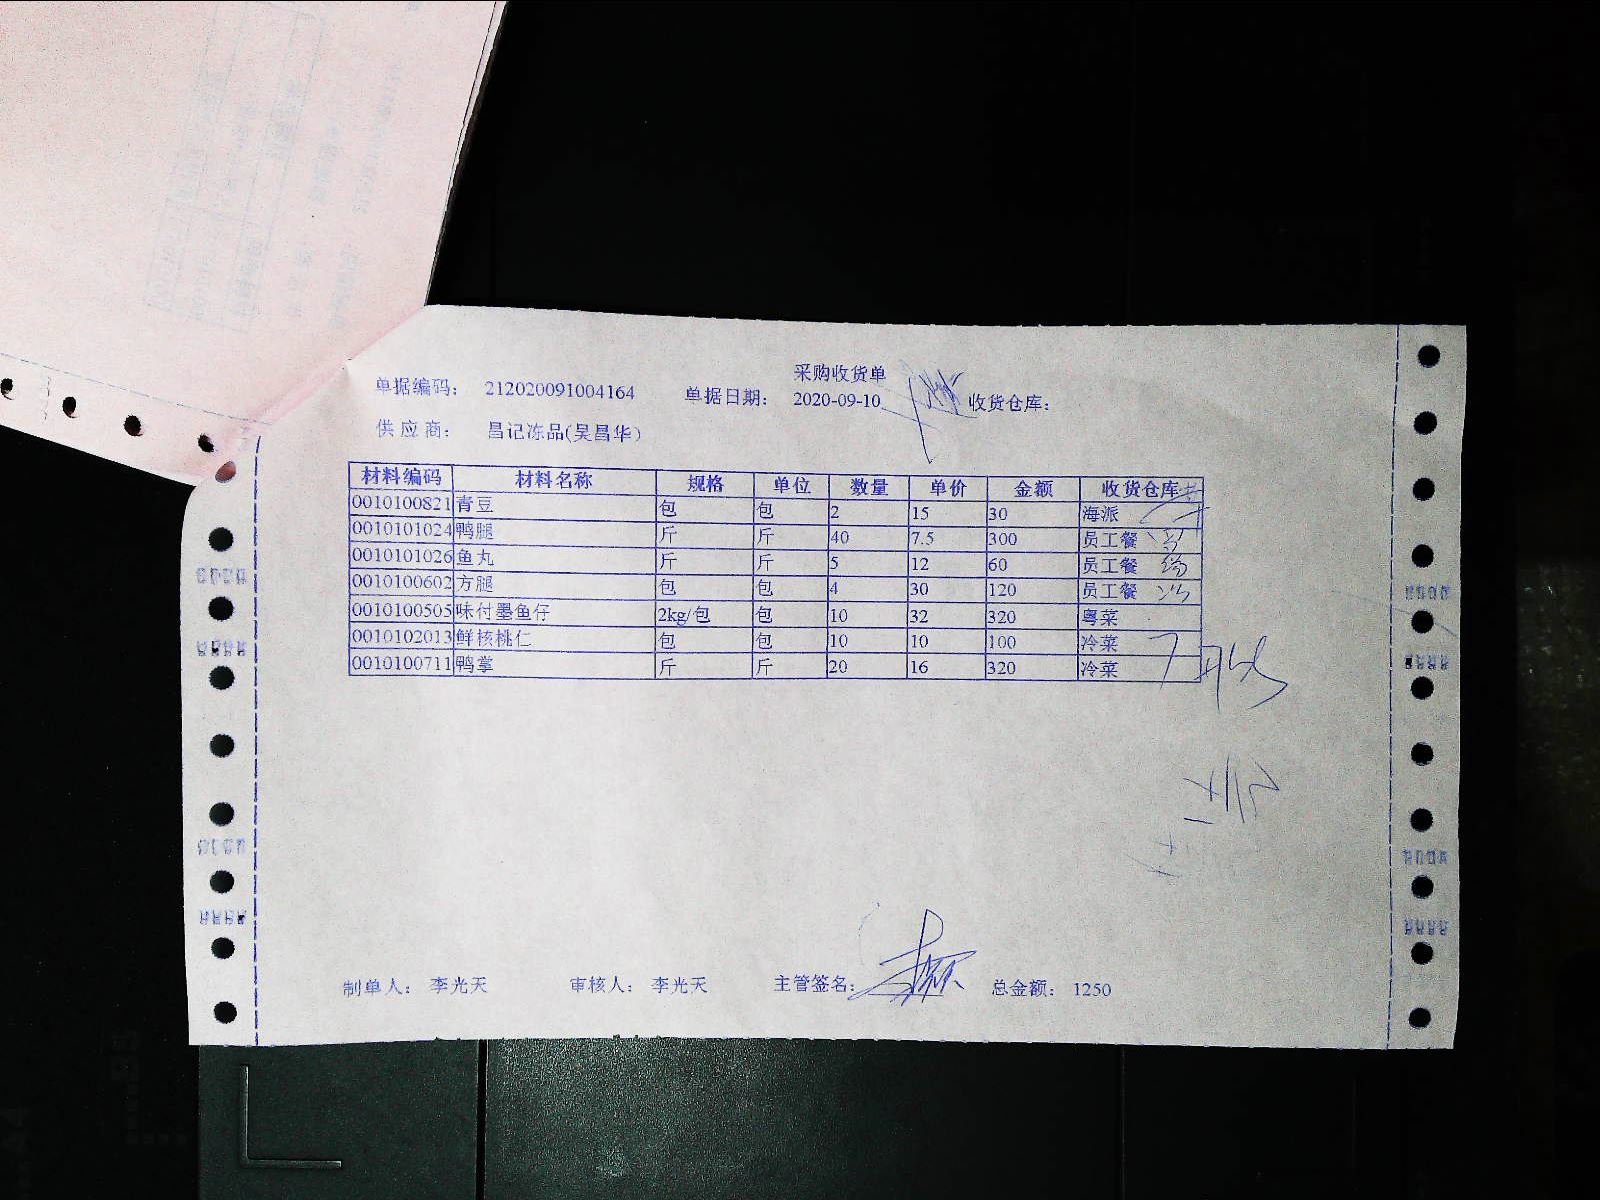 采购收货单
单据编码： 212020091004164 单据日期： 2020-09-10 收货仓库：
供应商： 昌记冻品(吴昌华)
材料编码 材料名称 规格 单位 数量 单价 金额 收货仓库
0010100821 青豆 包 包 2 15 30 海派
0010101024 鸭腿 斤 斤 40 7.5 300 员工餐
0010101026 鱼丸 斤 斤 5 12 60 员工餐
0010100602 方腿 包 包 4 30 120 员工餐
0010100505 味付墨鱼仔 2kg/包 包 10 32 320 粤菜
0010102013 鲜核桃仁 包 包 10 10 100 冷菜
0010100711 鸭掌 斤 斤 20 16 320 冷菜
制单人： 李光天 审核人： 李光天 主管签名： 总金额： 1250